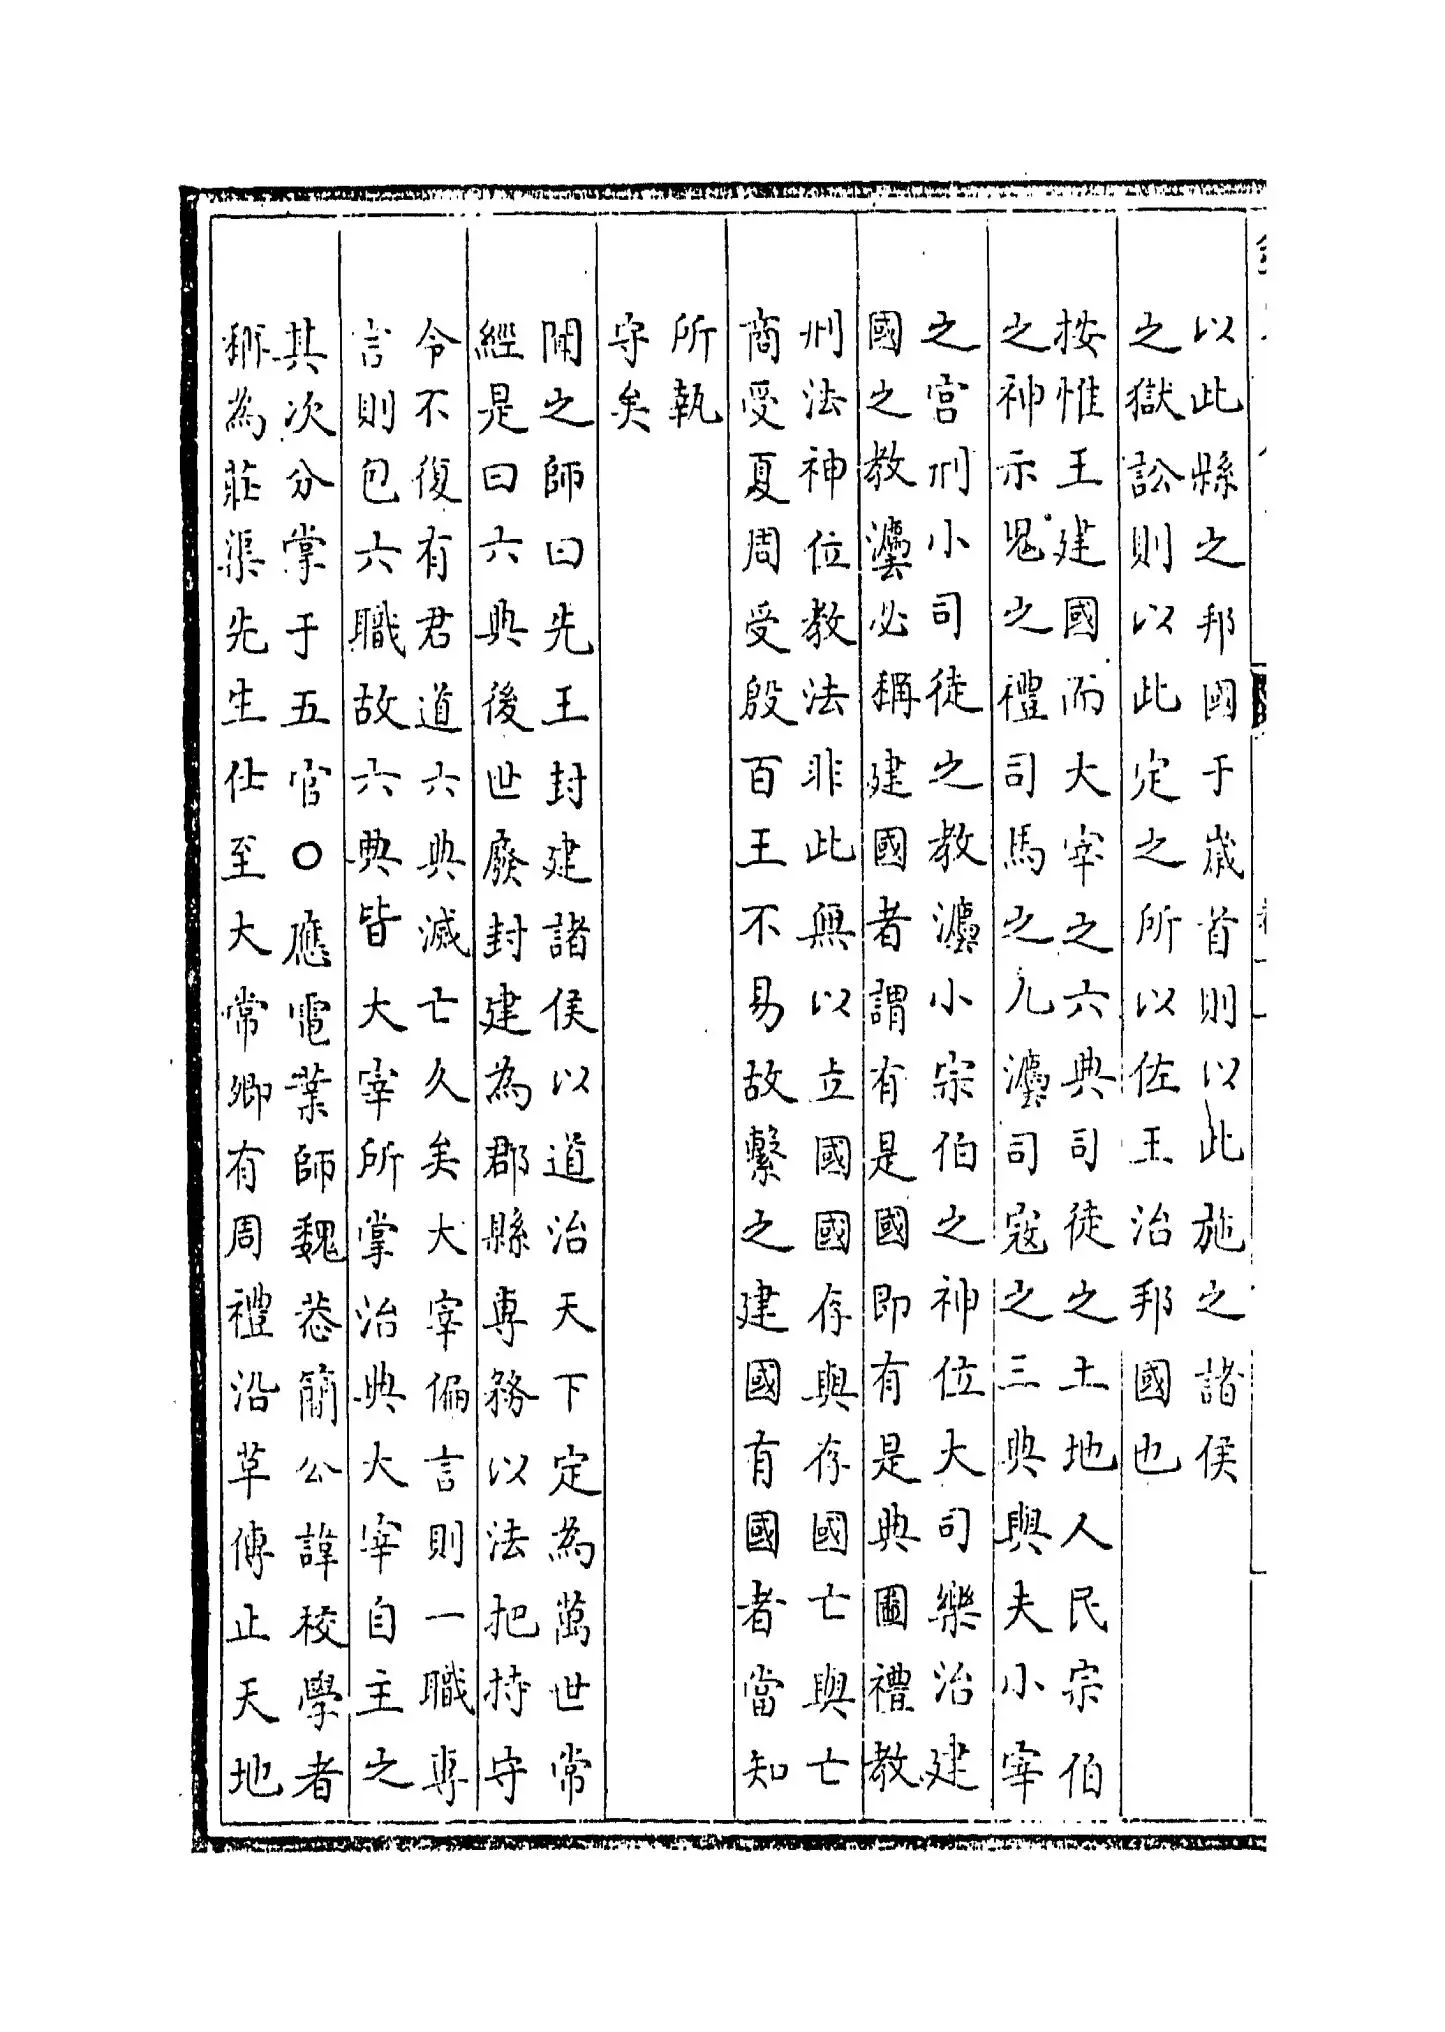 以此縣之邦國于歲首則以此施之諸侯
之獄訟則以此定之所以佐王治邦國也
按惟王建國而大宰之六典司徒之土地人民宗伯
之神示鬼之禮司馬之九灋司寇之三典與夫小宰
之宫刑小司徒之教灋小宗伯之神位大司樂治建
國之教灋必稱建國者謂有是國即有是典圖禮教
刑法神位教法非此無以立國國存與存國亡與亡
商受夏周受殷百王不易故繫之建國有國者當知
所執
守矣
聞之師曰先王封建諸侯以道治天下定為萬世常
經是曰六典後世廢封建為郡縣專務以法把持守
令不復有君道六典滅亡久矣大宰偏言則一職專
言則包六職故六典皆大宰所掌治典大宰自主之
其次分掌于五官○應電業師魏恭簡公諱校學者
稱為莊渠先生仕至大常卿有周禮沿革傳止天地